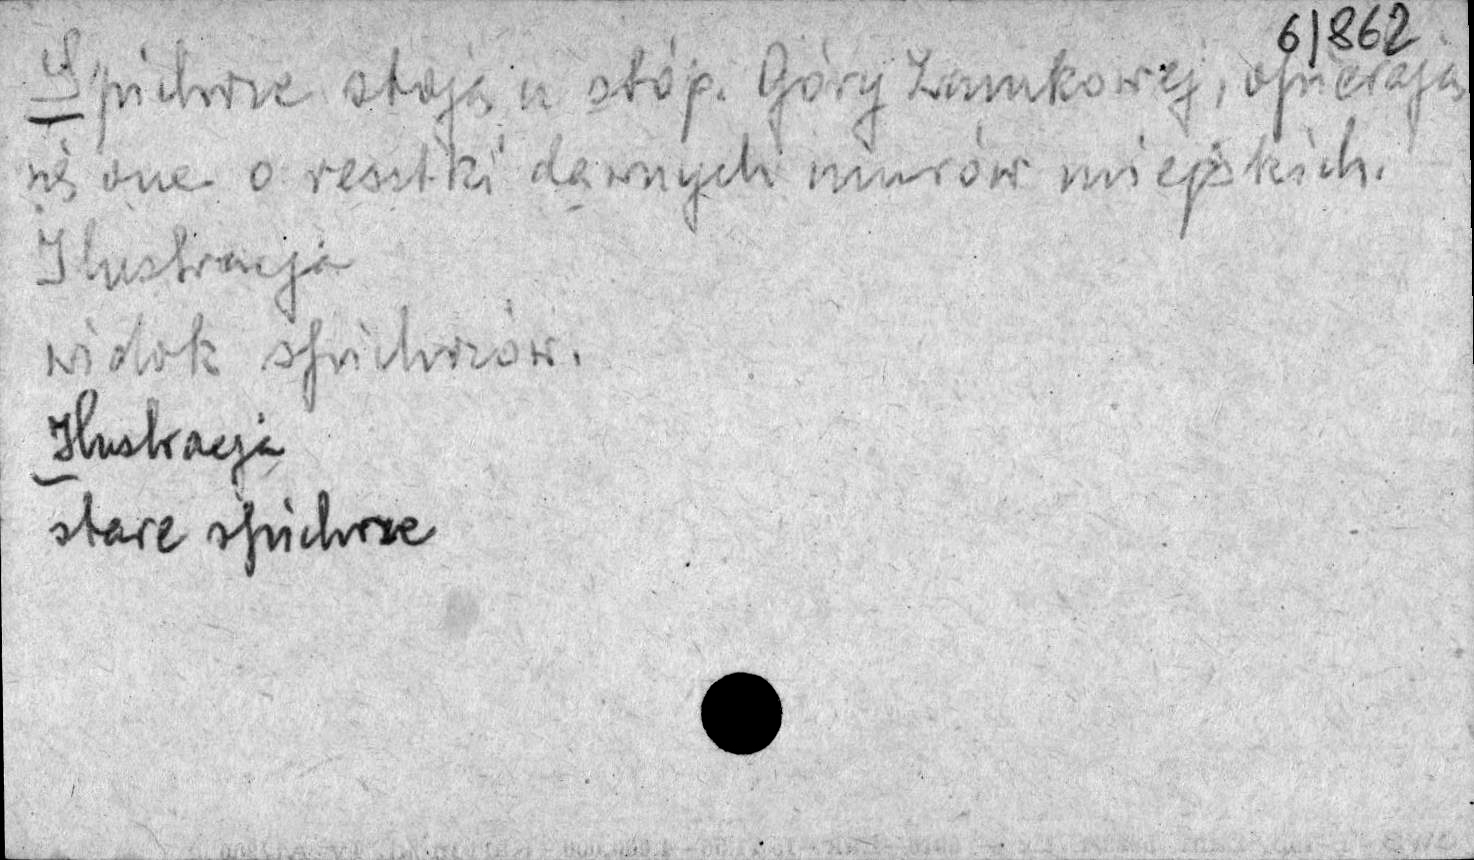 6/862
Spichrze stoją u stóp. Góry Zamkowej, opierają
się one o resztki dawnych murów miejskich.
Ilustracja
widok spichrzów.
Ilustracja
stare spichrze